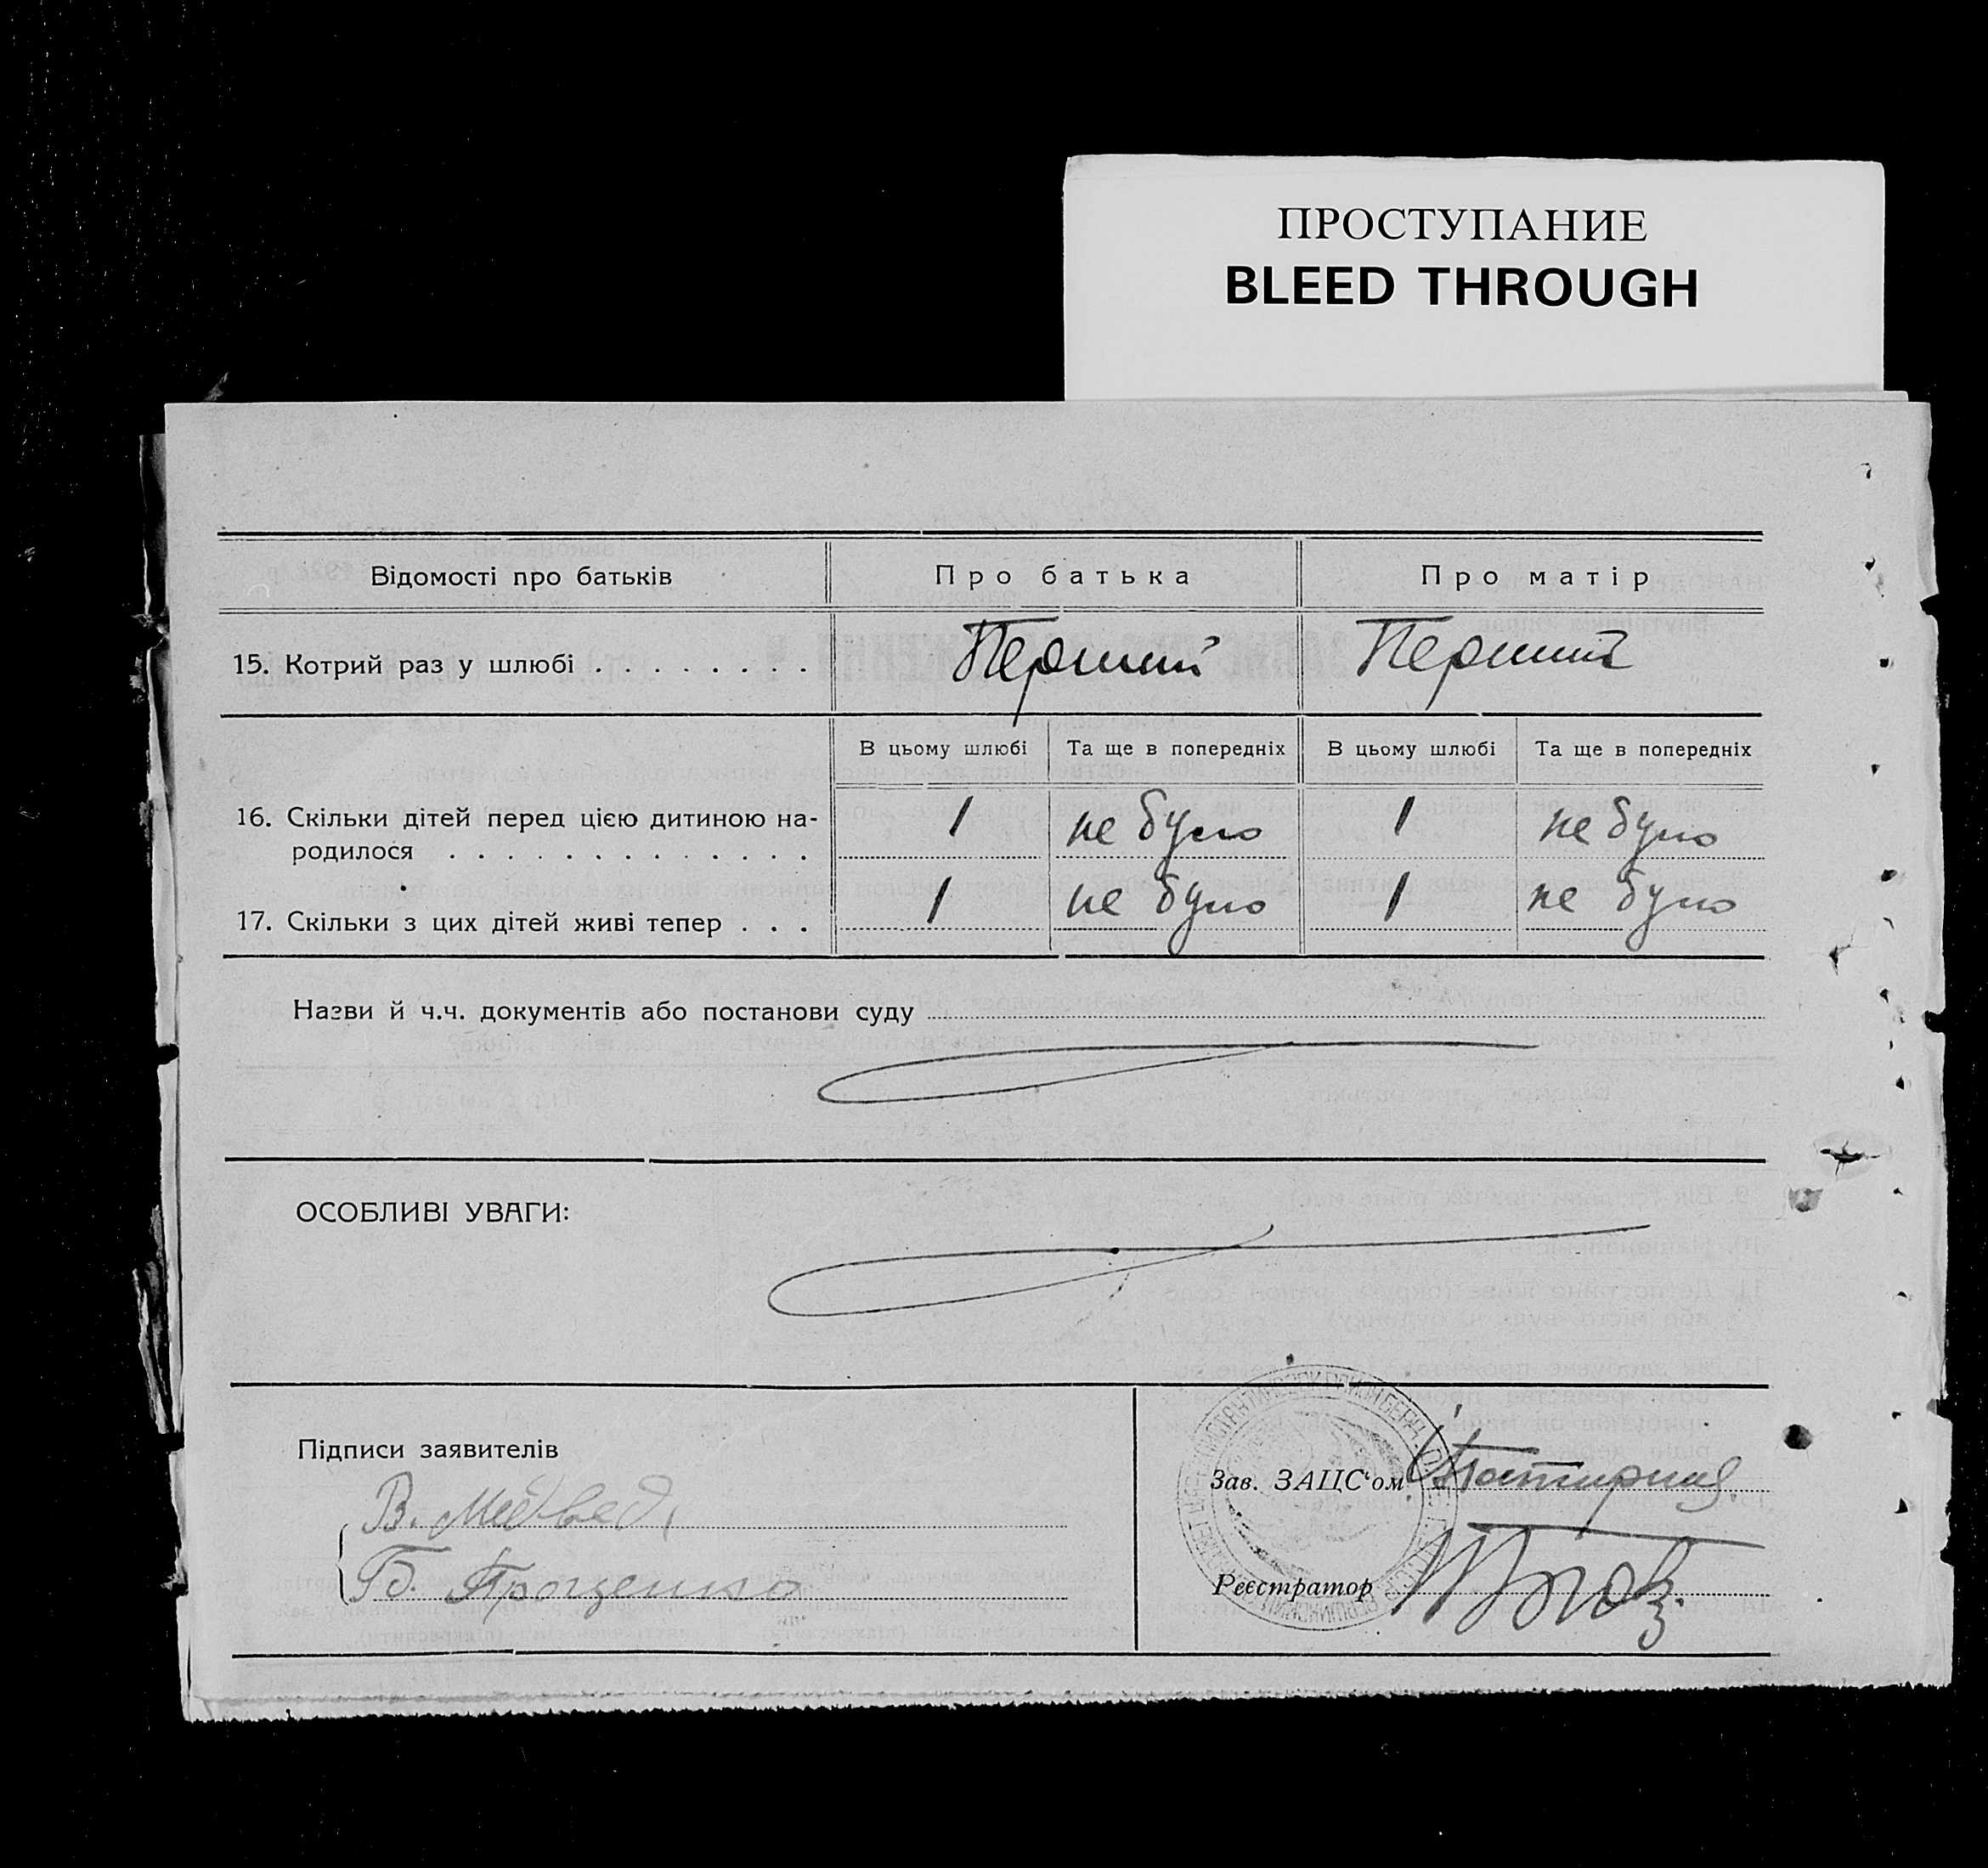 ПРОСТУПАНИЕ
BLEED THROUGH
Відомості про батьків Про батька Про матір
15. Котрий раз у шлюбі . . . . . . . . Перший Перший
В цьому шлюбі Та ще в попередніх В цьому шлюбі Та ще в попередніх
16. Скільки дітей перед цією дитиною на-
родилося . . . . . . . . . . . . . 1 не було 1 не було
17. Скільки з цих дітей живі тепер . . . 1 не було 1 не було
Назви й ч.ч. документів або постанови суду
ОСОБЛИВІ УВАГИ:
Підписи заявителів
В. Медвед
Б. Проценко
Зав. ЗАЦС'ом
Реєстратор